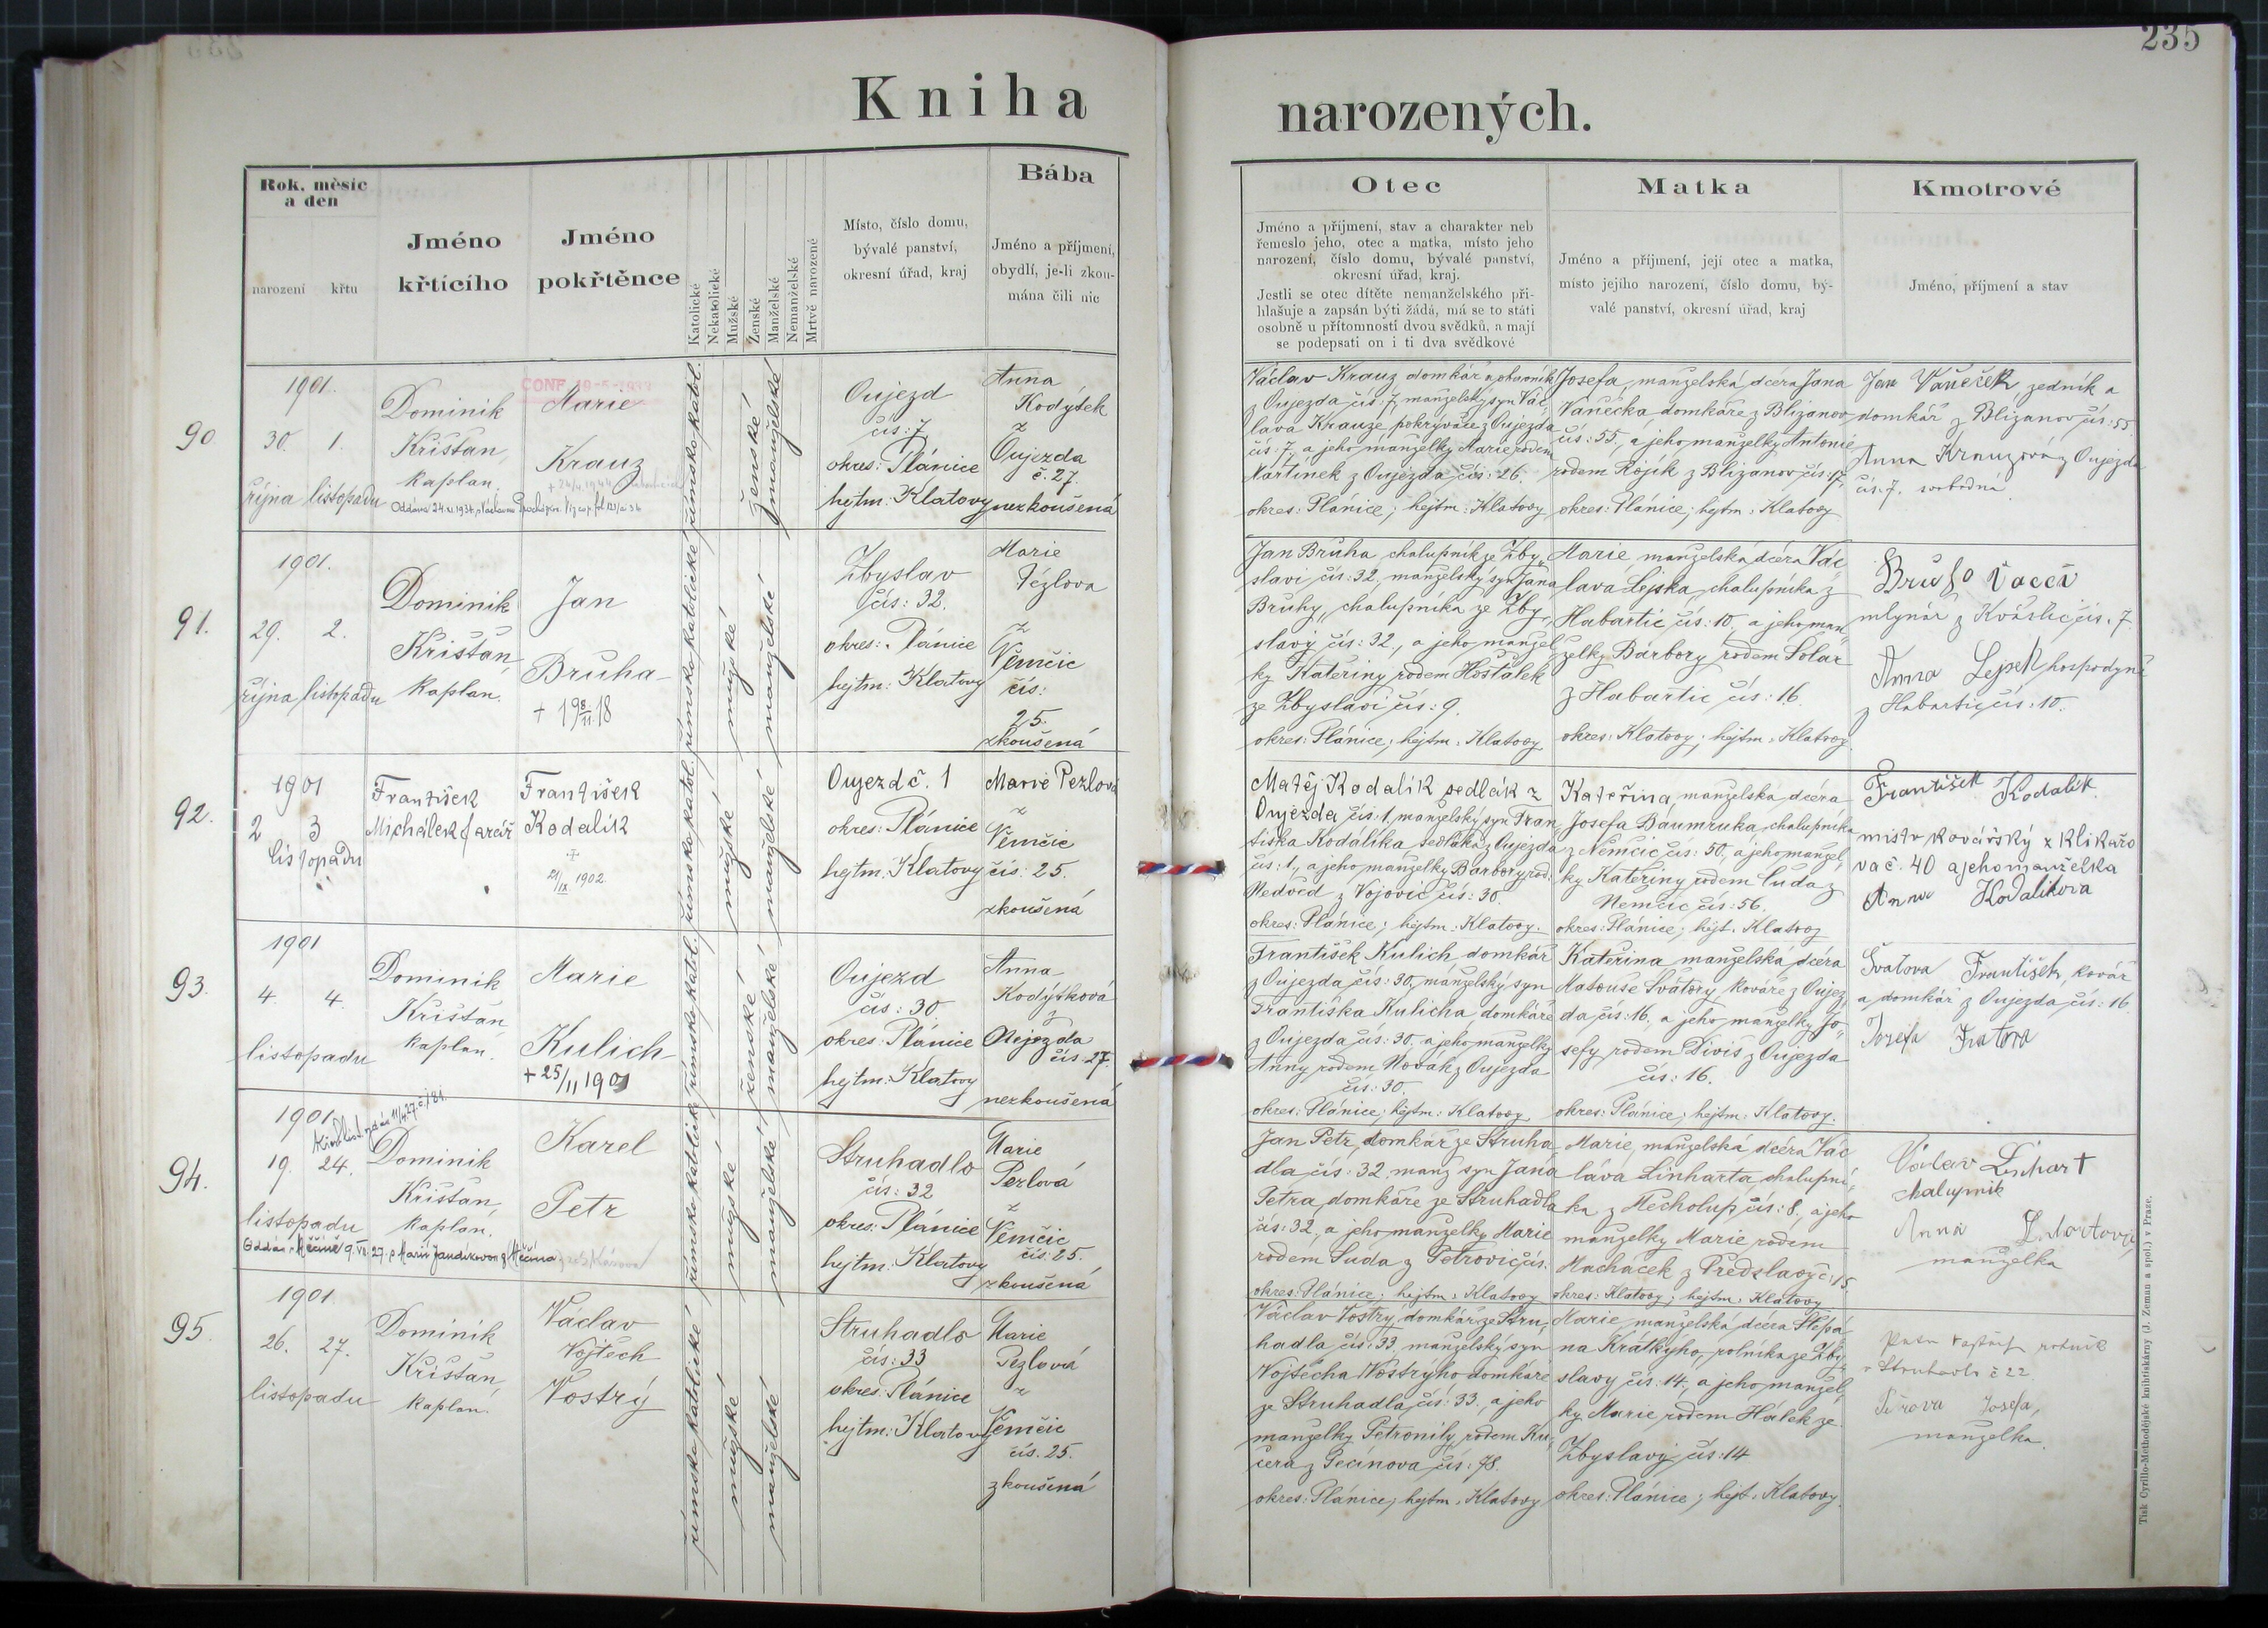 235
Kniha narozených.
Rok, měsíc a den
narození
křtu
Jméno křtícího
Jméno pokřtěnce
Katolické
Nekatolické
Mužské
Ženské
Manželské
Nemanželské
Mrtvě narozené
Místo, číslo domu,
bývalé panství,
okresní úřad, kraj
Bába
Jméno a příjmení,
obydlí, je-li zkou-
mána čili nic
Otec
Jméno a příjmení, stav a charakter neb
řemeslo jeho, otec a matka, místo jeho
narození, číslo domu, bývalé panství,
okresní úřad, kraj.
Jestli se otec dítěte nemanželského při-
hlašuje a zapsán býti žádá, má se to státi
osobně u přítomnosti dvou svědků, a mají
se podepsati on i ti dva svědkové
Matka
Jméno a příjmení, její otec a matka,
místo jejího narození, číslo domu, bý-
valé panství, okresní úřad, kraj
Kmotrové
Jméno, příjmení a stav
90.
1901.
30. 1.
října listopadu
Dominik
Krištan,
kaplan.
Marie
Krauz
římsko katol.
ženské
manželské
Oujezd
čís: 7
okres: Plánice
hejtm: Klatovy
Anna
Kodýdek
z
Oujezda
č. 27.
nezkoušená
Václav Krauz domkář
z Oujezda čís: 7, manželský syn Vác-
lava Krauze pokrývače z Oujezda
čís: 7, a jeho manželky Marie rodem
Martinek z Oujezda čís: 26.
okres: Plánice; hejtm: Klatovy
Josefa, manželská dcera Jana
Vaněčka, domkáře z Bližanov
čís: 55, a jeho manželky Antonie
rodem Rojík z Bližanov čís: 17,
okres: Plánice; hejtm: Klatovy
Jan Vaneček zedník a
domkář z Bližanov čís: 55.
Anna Krauzová z Oujezda
čís. 7. svobodná.
91.
1901.
29. 2.
října listopadu
Dominik
Krištan,
kaplan.
Jan
Bruha
+ 19 8/11 18
římsko katolické
mužské
manželské
Zbyslav
čís: 32.
okres: Plánice
hejtm: Klatovy
Marie
z
Němčic
čís:
25.
zkoušená
Jan Bruha chalupník ze Zby-
slavi čís: 32, manželský syn Jana
Bruhy, chalupníka ze Zby-
slavi čís: 32, a jeho manžel-
ky Kateřiny rodem Hošťálek
ze Zbyslavi čís: 9.
okres: Plánice; hejtm: Klatovy
Marie manželská dcera Vác-
lava Lejska, chalupníka z
Habartic čís: 10, a jeho man-
želky Barbory rodem Solar
z Habartic čís: 16.
okres: Klatovy; hejtm: Klatovy
mlynář z Kvášlic čís. 7
Anna Lejsek hospodyně
z Habartic čís: 10.
92.
1901
2 3
listopadu
František
Michálek farář
František
Kodalík
+
21/IX. 1902.
římsko katol.
mužské
manželské
Oujezd č. 1
okres: Plánice
hejtm: Klatovy
Marie Pezlová
z
Němčic
čís: 25.
zkoušená
Matěj Kodalík sedlák z
Oujezda čís. 1, manželský syn Fran-
tiška Kodalíka sedláka z Oujezda
čís: 1, a jeho manželky Barbory rod.
Medvěd z Vojovic čís: 30.
okres: Plánice; hejtm: Klatovy.
Kateřina, manželská dcera
Josefa Baumruka, chalupníka
z Němčic čís: 50, a jeho manžel-
ky Kateřiny rodem Cuda z
Němčic čís: 56.
okres: Plánice; hejt: Klatovy
František Kodalík
mistr kovářský z Klikařo
va č. 40 a jeho manželka
Anna Kodalíkova
93.
1901
4. 4.
listopadu
Dominik
Krištan,
kaplan.
Marie
Kulich
+ 25/11 1901
římsko katol.
ženské
manželské
Oujezd
čís: 30.
okres: Plánice
hejtm: Klatovy
Anna
Kodýtková
z
Oujezda
čís. 27.
nezkoušená
František Kulich domkář
z Oujezda čís: 30, manželský syn
Františka Kulicha, domkáře
z Oujezda čís: 30, a jeho manželky
Anny rodem Novák z Oujezda
čís: 30.
okres: Plánice; hejtm: Klatovy
Kateřina manželská dcera
Matouše Švátory, kováře z Oujez-
da čís: 16, a jeho manželky Jo-
sefy rodem Diviš z Oujezda
čís: 16.
okres: Plánice; hejtm: Klatovy.
František, kovář
a domkář z Oujezda čís: 16
Josefa
94.
1901
19. 24.
listopadu
Dominik
Krištan,
kaplan.
Karel
Petr
římsko katolické
mužské
manželské
Struhadlo
čís: 32
okres: Plánice
hejtm: Klatovy
Marie
Pezlová
z
Němčic
čís: 25.
zkoušená
Jan Petr, domkář ze Struha-
dla čís: 32, manž syn Jana
Petra, domkáře ze Struhadla
čís: 32, a jeho manželky Marie
rodem Suda z Petrovic čís.
okres: Plánice; hejtm: Klatovy
Marie, manželská dcera Vác-
láva Linharta chalupní-
ka z Mecholup čís: 8, a jeho
manželky Marie rodem
Macháček z Předslavy č: 15
okres: Klatovy; hejtm: Klatovy
Václav Linhart
chalupník
Anna
manželka
95.
1901
26. 27.
listopadu
Dominik
Krištan,
kaplan.
Václav
Vojtěch
Vostrý
římsko katolické
mužské
manželské
Struhadlo
čís: 33
okres: Plánice
hejtm: Klatovy
Marie
Pezlová
z
Němčic
čís. 25.
zkoušená
Václav Vostrý, domkář ze Stru-
hadla čís: 33, manželský syn
Vojtěcha Vostrýho domkáře
ze Struhadla čís: 33, a jeho
manželky Petronily, rodem Ku-
čera z Pečínova čís: 78.
okres: Plánice; hejtm: Klatovy
Marie manželská dcera Štěpá-
na Krátkýho, rolníka ze Zby-
slavy čís: 14, a jeho manžel-
ky Marie rodem Hálek ze
Zbyslavy čís: 14
okres: Plánice; hejt: Klatovy.
Struhadlo č 22.
Josefa,
manželka.
Tisk Cyrillo-Methodějské knihtiskárny (J. Zeman a spol.) v Praze.